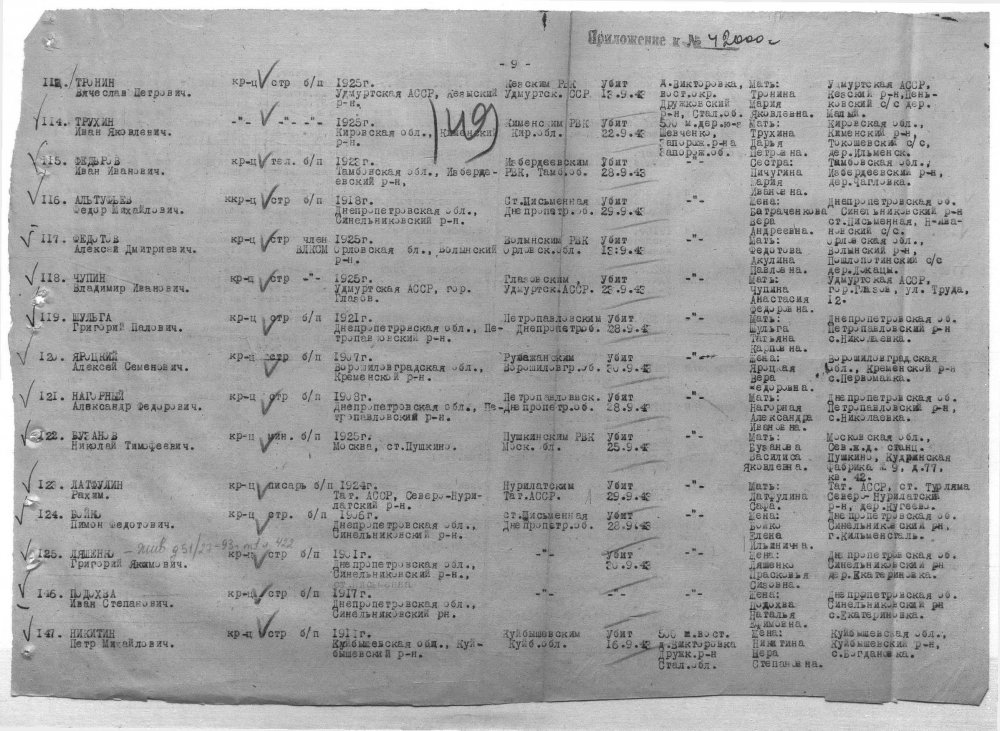 Приложение к № 42000с
- 9 -
113. ТРОНИН кр-ц стр б/п 1925г. Кезским РВК Убит д.Викторовка, Мать: Удмуртская АССР,
Вячеслав Петрович. Удмуртская АССР, Кезкий Удмуртск. ССР 13.9.43 вост.окр. Тронина Кезский р-н,
р-н. Дружковский Мария ковский с/с дер.
р-н, Стал.об. Яковлевна Малый.
114. ТРУХИН -"- -"- -"- 1925г. Кименским РВК Убит 500 м.дер. Мать: Кировская обл.,
Иван Яковлевич. Кировская обл., Кименский Кир.обл. 22.9.43 Шевченко, Трухина Кименский р-н,
р-н. Запорож.р-на Дарья Токошевский с/с,
Запорож.об. Петровна. дер.Ильменск.
149
115. ФЕДЬРОВ кр-ц тел. б/п 1923г. Избердеевским Убит -"- Сестра: Тамбовская обл.,
Иван Иванович. Тамбовская обл., Изберде- РВК, Тамб.об. 28.9.43 Пичугина Избердеевский р-н,
евский р-н, Мария дер.Чагловка.
Ивановна.
116. АЛЬТУФЬЕВ ккр-ц стр б/п 1918г. Ст.Письменная Убит -"- Жена: Днепропетровская об.
Федор Михайлович. Днепропетровская обл., Днепропетр.об. 29.9.43 Батраченкова Синельниковский р-н
Синельниковский р-н. Вера ст.Письменная,
Андреевна. новский с/с.
117. ФЕДОТОВ кр-ц стр член 1925г. Волынским РВК Убит -"- Мать: Орловская обл.,
Алексей Дмитриевич. ВЛКСМ Орловская бл., Волынский Орловск.обл. 13.9.43 Федотова Волынский р-н,
р-н. Акулина Пошлопотинский с/с
Павловна. дер.Докацы.
118. ЧУПИН кр-ц стр -"- 1925г. Глазовским Убит -"- Мать: Удмуртская АССР,
Владимир Иванович. Удмуртская АССР, гор. Удмуртск.АССР. 23.9.43 Чупина гор.Глазов, ул. Труда,
Глазов. Анастасия 12.
Федоровна.
119. ШУЛЬГА кр-ц стр б/п 1921г. Петропавловским Убит -"- Мать: Днепропетровская об.
Григорий Палович. Днепропетровская обл., Пе- Днепропетроб. 28.9.43 Шульга Петропавловский р-н
тропавловский р-н. Татьяна с.Николаевка.
Карповна.
120. ЯРОЦКИЙ кр-ц стр б/п 1907г. Рубежанским Убит -"- Жена: Ворошиловградская
Алексей Семенович. Ворошиловградская обл., Ворошиловгр.об. 30.9.43 Яроцкая обл., Кременской р-н
Кременской р-н. Вера с.Первомайка.
Федоровна.
121. НАГОРНЫЙ кр-ц стр б/п 1908г. Петропавловск. Убит -"- Мать: Днепропетровская об.
Александр Федорович. Днепропетровская обл., Пе- Днепропетр.об. 28.9.43 Нагорная Петропавловский р-н,
тропавловский р-н. Александра с.Николаевка.
Ивановна.
122. БУЗАНОВ кр-ц мин. б/п 1925г. Пушкинским РВК Убит -"- Мать: Московская обл.,
Николай Тимофеевич. Москва, ст.Пушкино. Моск.обл. 25.9.43 Бузанова Сев.ж.д. станц.
Василиса Пушкино, Кудринская
Яковлевна. фабрика № 9, д.77,
кв. 42.
123. ЛАТФУЛИН кр-ц писарь б/п 1924г. Нурилатским Убит -"- Мать: Тат. АССР, ст. Турляма
Рахим. Тат. АССР, Северо-Нури- Тат.АССР. 29.9.43 Латфулина Северо-Нурилатский
латский р-н Сара. р-н, дер.Нугеево.
124. БОЙКО кр-ц стр. б/п 1906г. ст.Письменная Убит -"- Жена: Днепропетровская об.
Пимон Федотович. Днепропетровская обл., Днепропетр.об. 28.9.43 Бойко Синельниковский рн,
Синельниковский р-н. Елена г.Кильменсталь.
Ильинична.
125. ДЯШЕНКО - жив д51/27-93 422 кр-ц стр б/п 1901г. -"- Убит -"- Жена: Днепропетровская об.
Григорий Якимович. Днепропетровская обл., 30.9.43 Дяшенко Синельниковский рн
Синельниковский р-н., Прасковья дер.Екатериновка.
Сизовна.
146. ПОДОХВА кр-ц стр б/п 1917г. -"- -"- -"- Жена: Днепропетровская об.
Иван Степанович. Днепропетровская обл., Подохва Синельниковский рн
Синельниковский рн. Наталья с.Екатериновка.
Ефимовна.
147. НИКИТИН кр-ц стр б/п 1911г. Куйбышевским Убит 500 м.вост. Жена: Куйбышевская обл.,
Петр Михайлович. Куйбышевская общ., Куй- Куйб.обл. 16.9.43 д.Викторовка Никитина Куйбышевский р-н,
бышевский р-н. Дружк.р-н Вера с.Богдановка.
Стал.обл. Степановна.